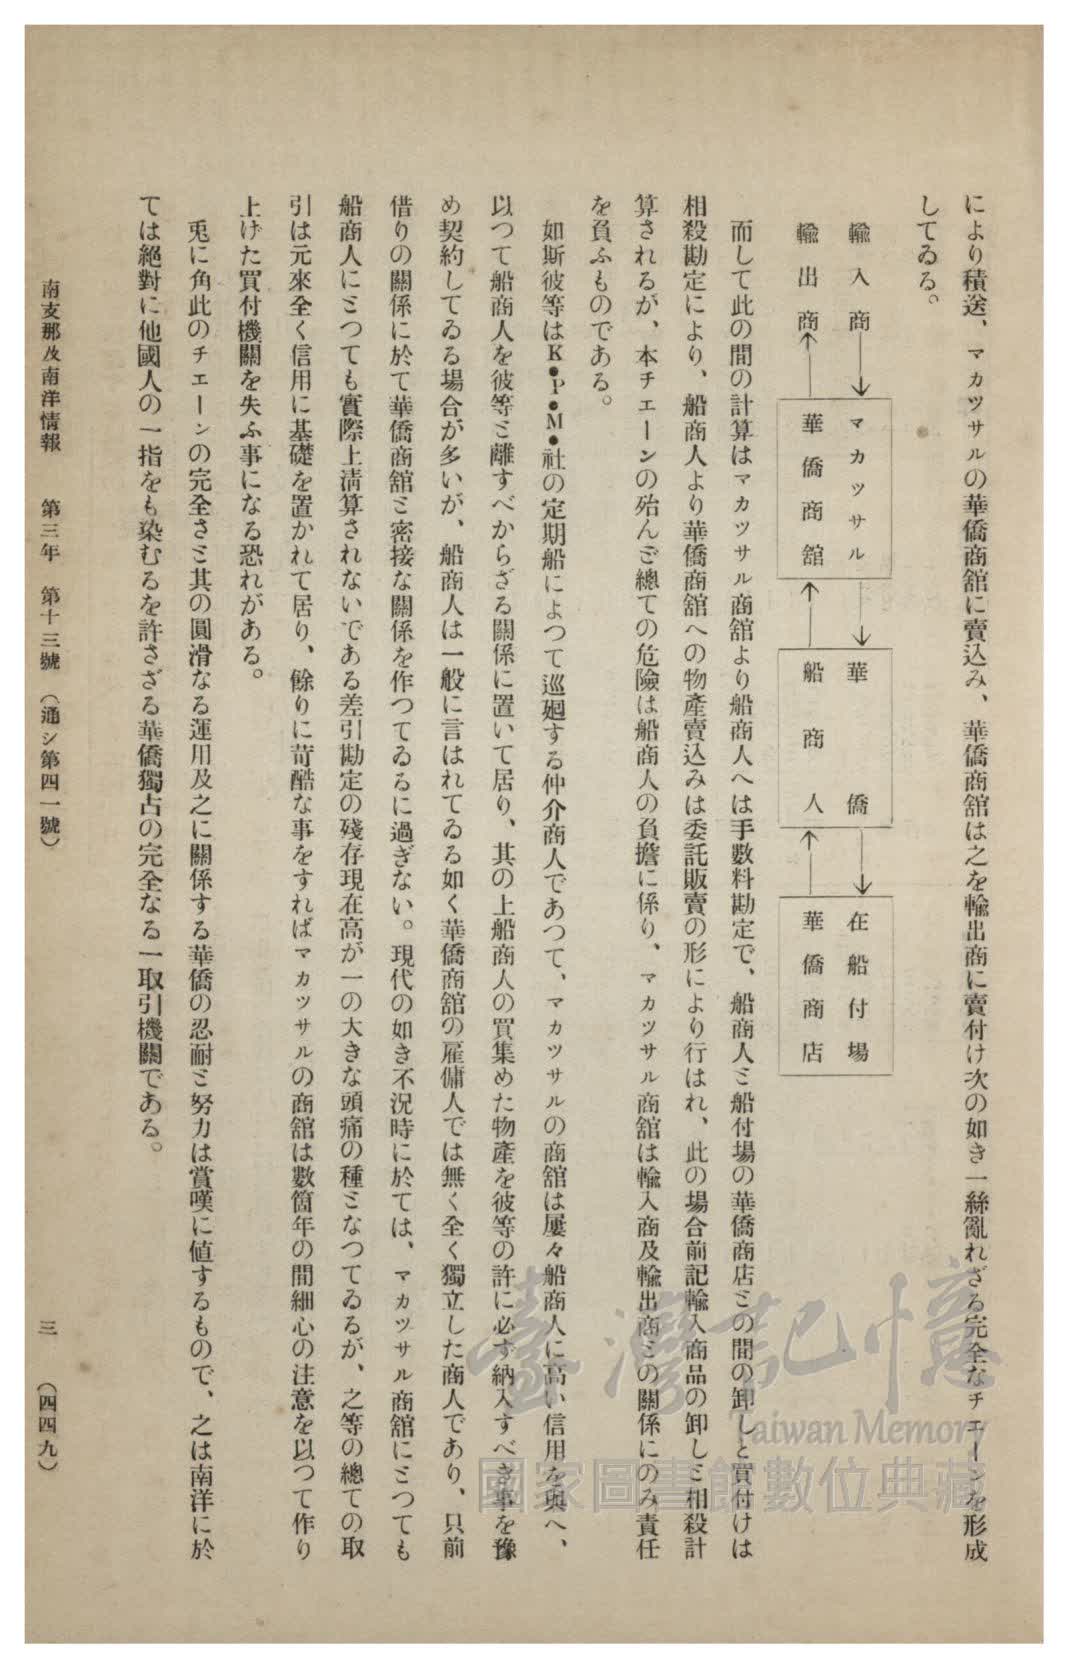 により積送、マカツサルの華僑商舘に賣込み、華僑商舘は之を輸出商に賣付け次の如き一絲亂れざる完全なチエーンを形成
してゐる。
輸入商
輸出商
マカツサル
華僑商舘
華僑
船商人
在船付場
華僑商店
而して此の間の計算はマカツサル商舘より船商人へは手數料勘定で、船商人ミ船付場の華僑商店ミの間の卸しと買付けは
相殺勘定により、船商人より華僑商舘への物產賣込みは委託販賣の形により行はれ、此の場合前記輸入商品の卸しミ相殺計
算されるが、本チエーンの殆んど總ての危險は船商人の負擔に係り、マカツサル商舘は輸入商及輸出商ミの關係にのみ責任
を負ふものである。
如斯彼等はK•P•M•社の定期船によつて巡廻する仲介商人であつて、マカツサルの商舘は屢々船商人に高い信用を與へ、
以つて船商人を彼等ミ離すべからざる關係に置いて居り、其の上船商人の買集めた物產を彼等の許に必ず納入すべき事を豫
め契約してゐる場合が多いが、船商人は一般に言はれてゐる如く華僑商舘の雇傭人では無く全く獨立した商人であり、只前
借りの關係に於て華僑商舘ミ密接な關係を作つてゐるに過ぎない。現代の如き不況時に於ては、マカツサル商舘にミつても
船商人にミつても實際上淸算されないである差引勘定の殘存現在高が一の大きな頭痛の種ミなつてゐるが、之等の總ての取
引は元來全く信用に基礎を置かれて居り、餘りに苛酷な事をすればマカツサルの商舘は數箇年の間細心の注意を以つて作り
上げた買付機關を失ふ事になる恐れがある。
兎に角此のチエーンの完全さミ其の圓滑なる運用及之に關係する華僑の忍耐ミ努力は賞嘆に値するもので、之は南洋に於
ては絕對に他國人の一指をも染むるを許さざる華僑獨占の完全なる一取引機關である。
南支那及南洋情報 第三年 第十三號 （通シ第四一號） 三 （四四九）
臺灣記憶
Taiwan Memory
國家圖書館數位典藏